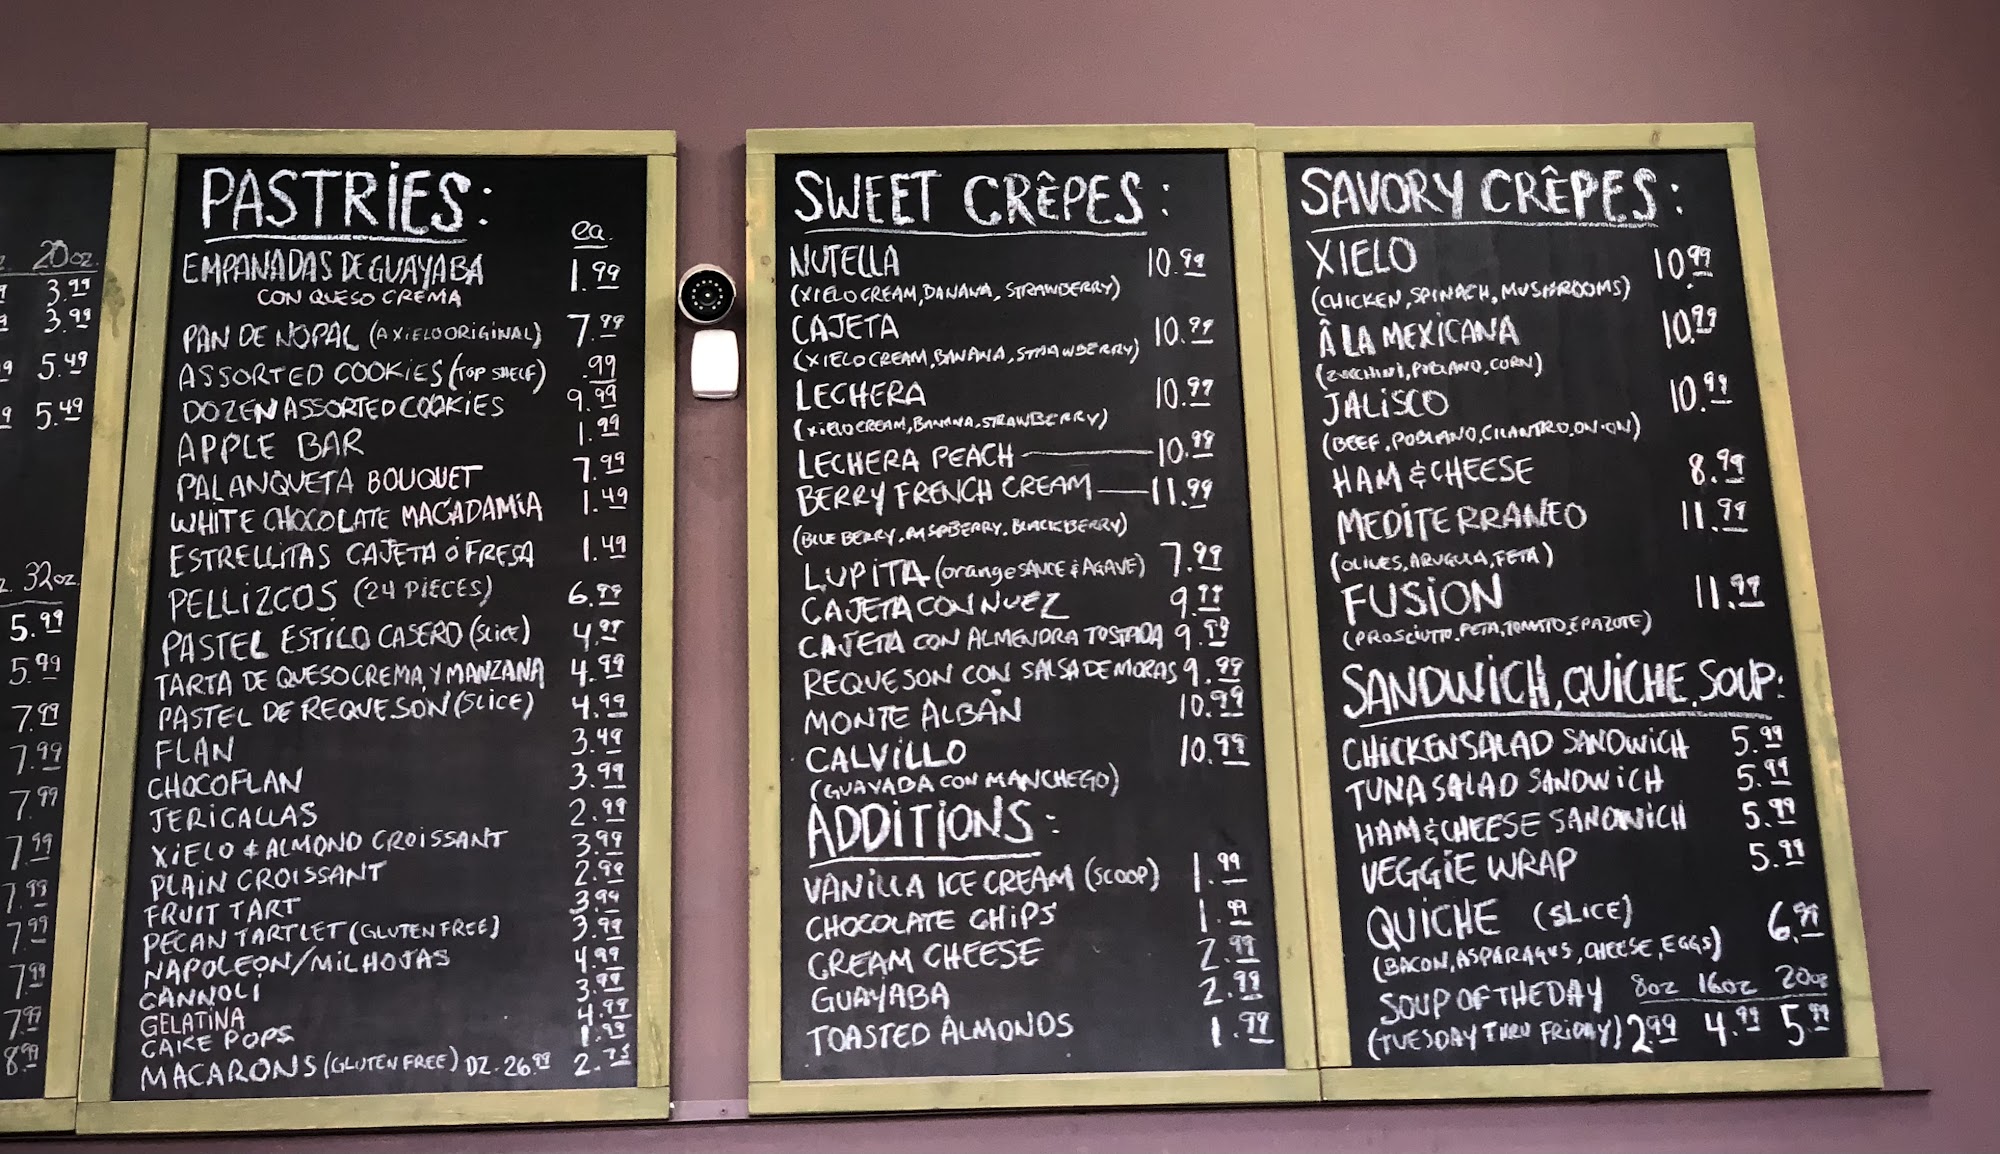 20oz.
3.99
3.99
5.49
5.49
32oz.
5.99
5.99
7.99
7.99
7.99
7.99
7.99
7.99
7.99
7.99
8.99
PASTRIES:
ea.
EMPANADAS DE GUAYABA 1.99
CON QUESO CREMA
PAN DE NOPAL (A XIELO ORIGINAL) 7.99
ASSORTED COOKIES (TOP SHELF) .99
DOZEN ASSORTED COOKIES 9.99
APPLE BAR 1.99
PALANQUETA BOUQUET 7.99
WHITE CHOCOLATE MACADAMIA 1.49
ESTRELLITAS CAJETA Ó FRESA 1.49
PELLIZCOS (24 PIECES) 6.99
PASTEL ESTILO CASERO (SLICE) 4.99
TARTA DE QUESO CREMA Y MANZANA 4.99
PASTEL DE REQUESÓN (SLICE) 4.99
FLAN 3.49
CHOCOFLAN 3.99
JERICALLAS 2.99
XIELO & ALMOND CROISSANT 3.99
PLAIN CROISSANT 2.99
FRUIT TART 3.99
PECAN TARTLET (GLUTEN FREE) 3.99
NAPOLEON/MILHOJAS 4.99
CANNOLI 3.99
GELATINA 4.99
CAKE POPS 1.99
MACARONS (GLUTEN FREE) DZ. 26.99 2.75
SWEET CRÊPES:
NUTELLA 10.99
(XIELO CREAM, BANANA, STRAWBERRY)
CAJETA 10.99
(XIELO CREAM, BANANA, STRAWBERRY)
LECHERA 10.99
(XIELO CREAM, BANANA, STRAWBERRY)
LECHERA PEACH 10.99
BERRY FRENCH CREAM 11.99
(BLUEBERRY, RASPBERRY, BLACKBERRY)
LUPITA (orange SAUCE & AGAVE) 7.99
CAJETA CON NUEZ 9.99
CAJETA CON ALMENDRA TOSTADA 9.99
REQUESON CON SALSA DE MORAS 9.99
MONTE ALBÁN 10.99
CALVILLO 10.99
(GUAYABA CON MANCHEGO)
ADDITIONS:
VANILLA ICE CREAM (SCOOP) 1.99
CHOCOLATE CHIPS 1.99
CREAM CHEESE 2.99
GUAYABA 2.99
TOASTED ALMONDS 1.99
SAVORY CRÊPES:
XIELO 10.99
(CHICKEN, SPINACH, MUSHROOMS)
Â LA MEXICANA 10.99
(ZUCCHINI, POBLANO, CORN)
JALISCO 10.99
(BEEF, POBLANO, CILANTRO, ONION)
HAM & CHEESE 8.99
MEDITERRANEO 11.99
(OLIVES, ARUGULA, FETA)
FUSION 11.99
(PROSCIUTTO, FETA, TOMATO, EPAZOTE)
SANDWICH, QUICHE, SOUP:
CHICKEN SALAD SANDWICH 5.99
TUNA SALAD SANDWICH 5.99
HAM & CHEESE SANDWICH 5.99
VEGGIE WRAP 5.99
QUICHE (SLICE) 6.99
(BACON, ASPARAGUS, CHEESE, EGGS)
SOUP OF THE DAY 8oz 16oz 20oz
(TUESDAY THRU FRIDAY) 2.99 4.99 5.99